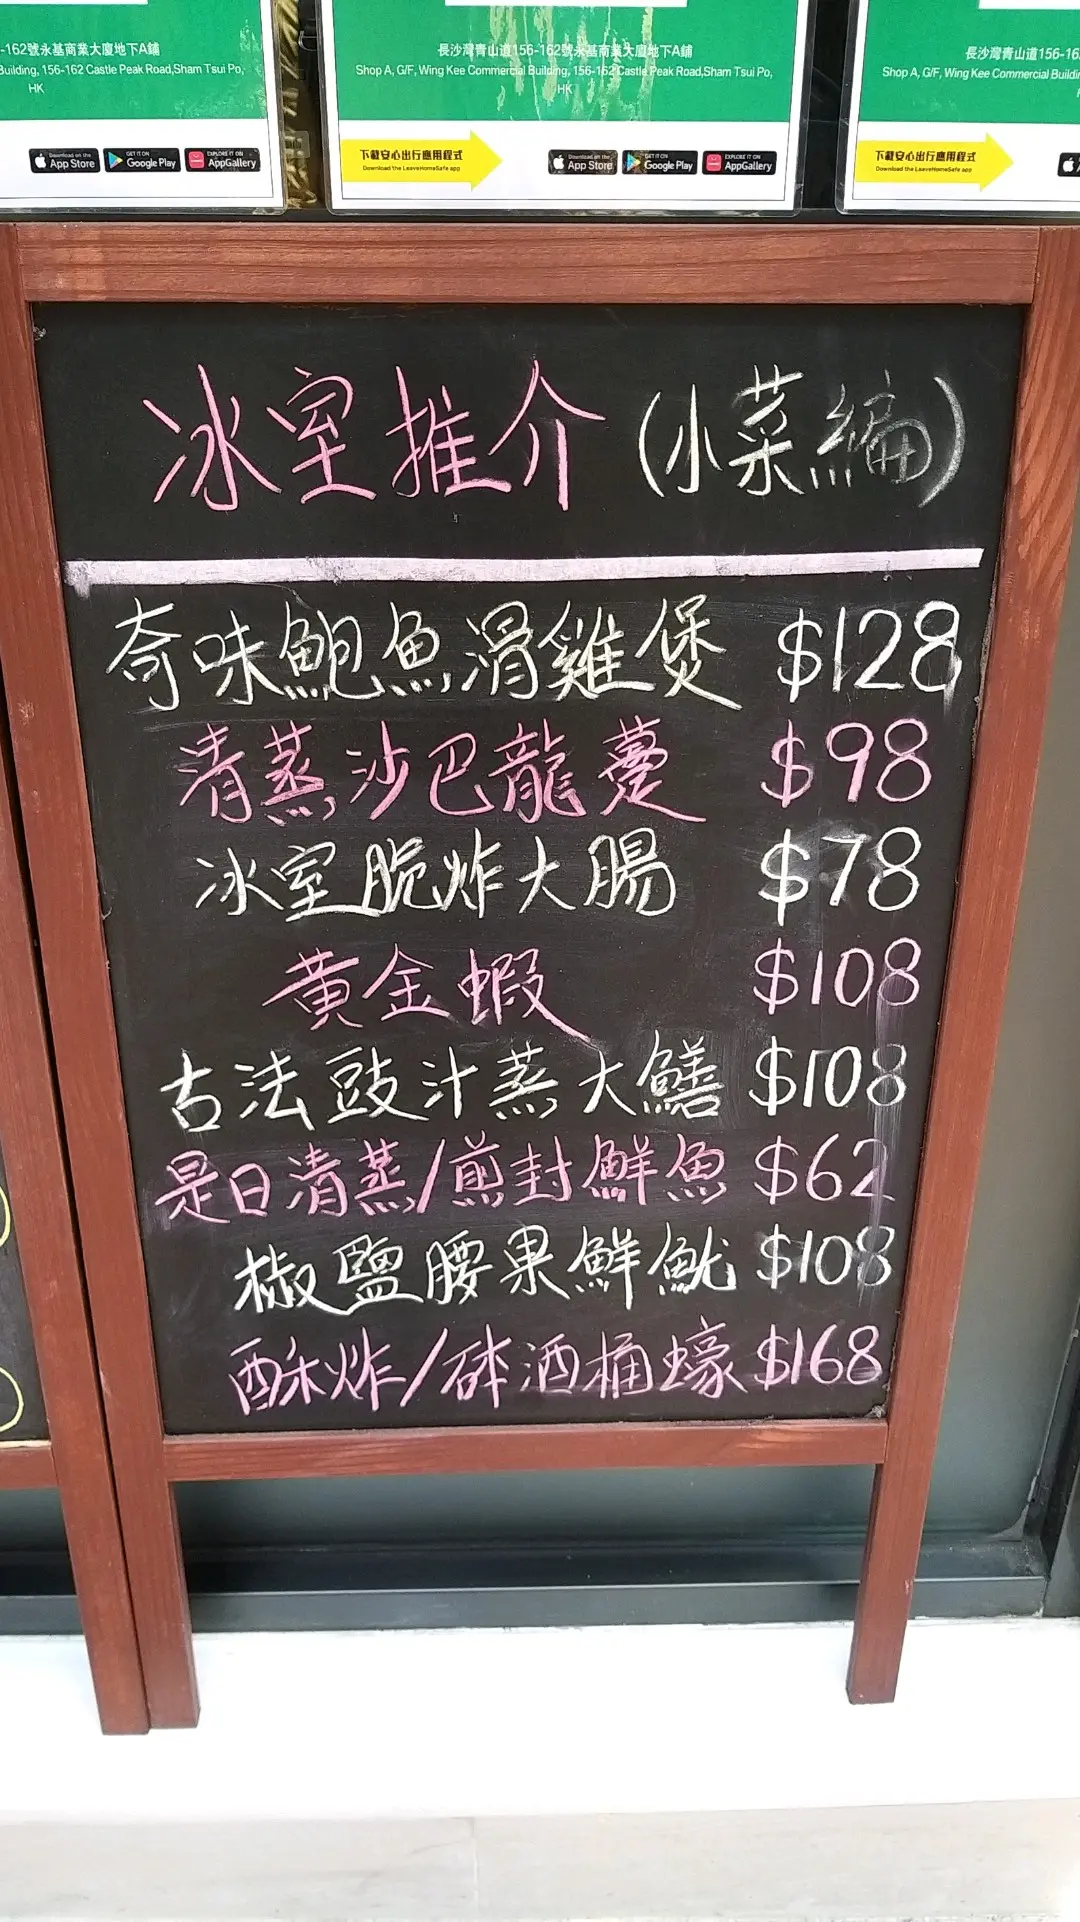 -162號永基商業大廈地下A鋪
Building, 156-162 Castle Peak Road,Sham Tsui Po,
HK
Download on the
App Store
GET IT ON
Google Play
EXPLORE IT ON
AppGallery
長沙灣青山道156-162號永基商業大廈地下A鋪
Shop A, G/F, Wing Kee Commercial Building, 156-162 Castle Peak Road,Sham Tsui Po,
HK
下載安心出行應用程式
Download the LeaveHomeSafe app
Download on the
App Store
GET IT ON
Google Play
EXPLORE IT ON
AppGallery
長沙灣青山道156-16
Shop A, G/F, Wing Kee Commercial Buildin
下載安心出行應用程式
Download the LeaveHomeSafe app
冰室推介(小菜編)
奇味鮑魚滑雞煲 $128
清蒸沙巴龍躉 $98
冰室脆炸大腸 $78
黃金蝦 $108
古法豉汁蒸大鱔 $108
是日清蒸/煎封鮮魚 $62
椒鹽腰果鮮魷 $108
酥炸/砵酒桶蠔 $168